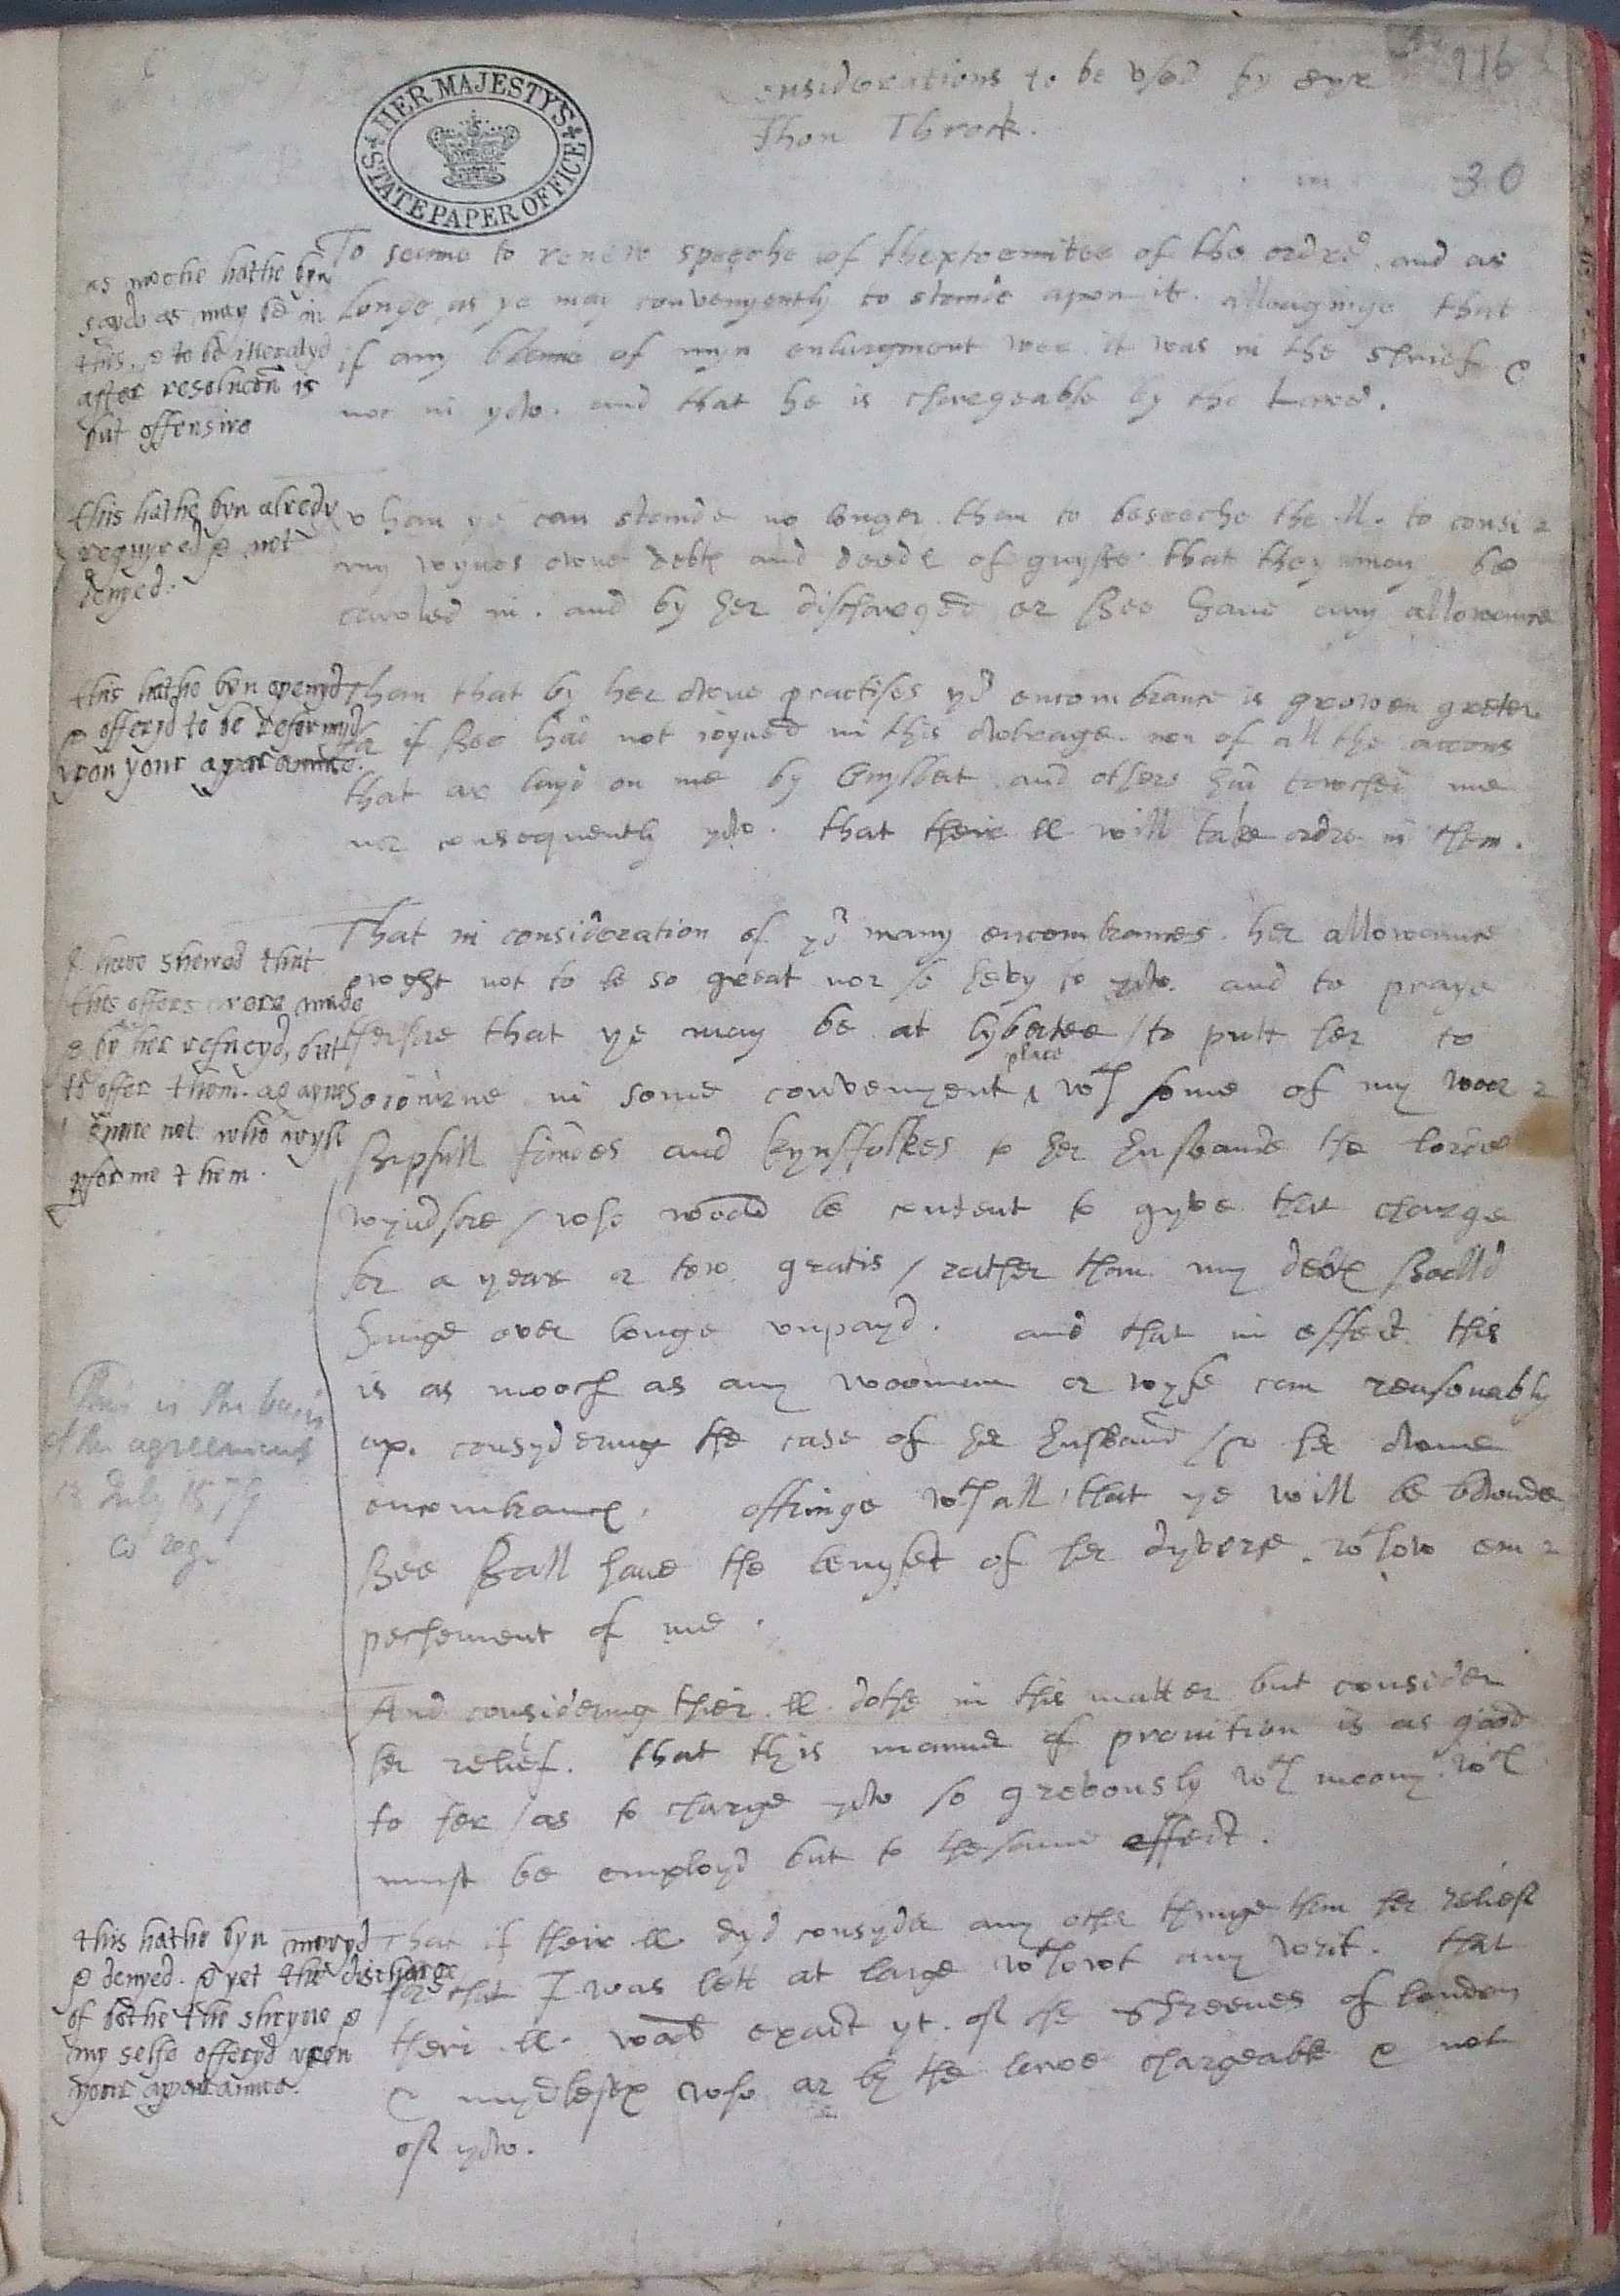 Considerations to be vsed by Syr
Jhon Throck.
116
HER MAJESTY'S STATE PAPER OFFICE
30
as moche hathe byn
sayd as may be in
this. & to be iteratyd
after resolucon is
but offensive
To seeme to renew speeche of thextremitee of the ordre. and as
longe as ye may convenyently to stande apon it. alleaginge that
if any blame of myn enlargment wer. it was in the shrief &
not in yow. and that he is chargeable by the Lawe.
this hathe byn alredy
requyred & not
denyed.
whan ye can stande no longer. than to beseeche the .ll. to consi
my wyues owne debtes and deedes of guyfte that they may be
called in. and by her discharged er shee haue any allowance
this hathe byn openyd
& offeryd to be reformyd
vpon your aparaunce.
Than that by her owne practises yor encombrance is growen greter
for if shee had not ioyned in this owtrage. non of all the accons
that ar layd on me by and others had towched me
nor consequently yow. that their ll will take ordre in them.
I have shewed that
this offers were made
& by her refucyd, but
to offer them. agayne
I spare not who wyll
performe them.
That in consideration of yor many encombrances. her allowaunce
owght not to be so great nor so hevy to yow. and to praye
therfore that ye may be at lybertee / to putt her to
soiourne in some convenyent place wth some of my woor
shipfull frindes and kynsfolkes to her husbande the lorde
wyndsore / who woold be content to gyve that charge
for a yeare or tow gratis / rather than my debtes shoolld
hange over longe vnpayd. and that in effect this
is as mooch as any woomen or wyfe can reasonably
ax. consydering the case of her husband / & her owne
encombrances. offringe wthall that ye will be bownde
shee shall have the benyfit of her dyvorse. wthow em
pechement of me.
This is the basis
of the agreement
13 July 1579
Co reg.
And considering their .ll. dothe in this matter but consider
her relief. that this manner of prouition is as good
to her / as to charge yow so grevously wth mony. wch
must be employd but to the same effect.
this hathe byn mevyd
& denyed. & yet the discharge
of bothe the shryve &
my selfe offeryd vpon
your aparaunce.
That if their ll. dyd consyder any other thinge then her relief
for that I was lett at large wthowt any writ. that
their ll. woold exact yt. of the shreeues of london
& myddlesex who ar by the lawe chargeable & not
of yow.